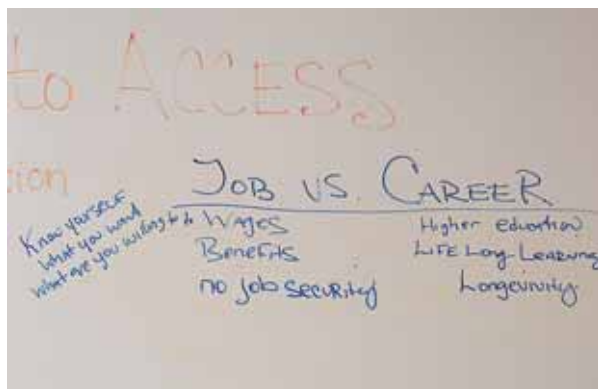 to ACCESS
ion
JOB VS. CAREER
Know yourself
what you want
what are you willing to do
Wages
Benefits
no job security
Higher education
LIFE Long Learning
Longevivity